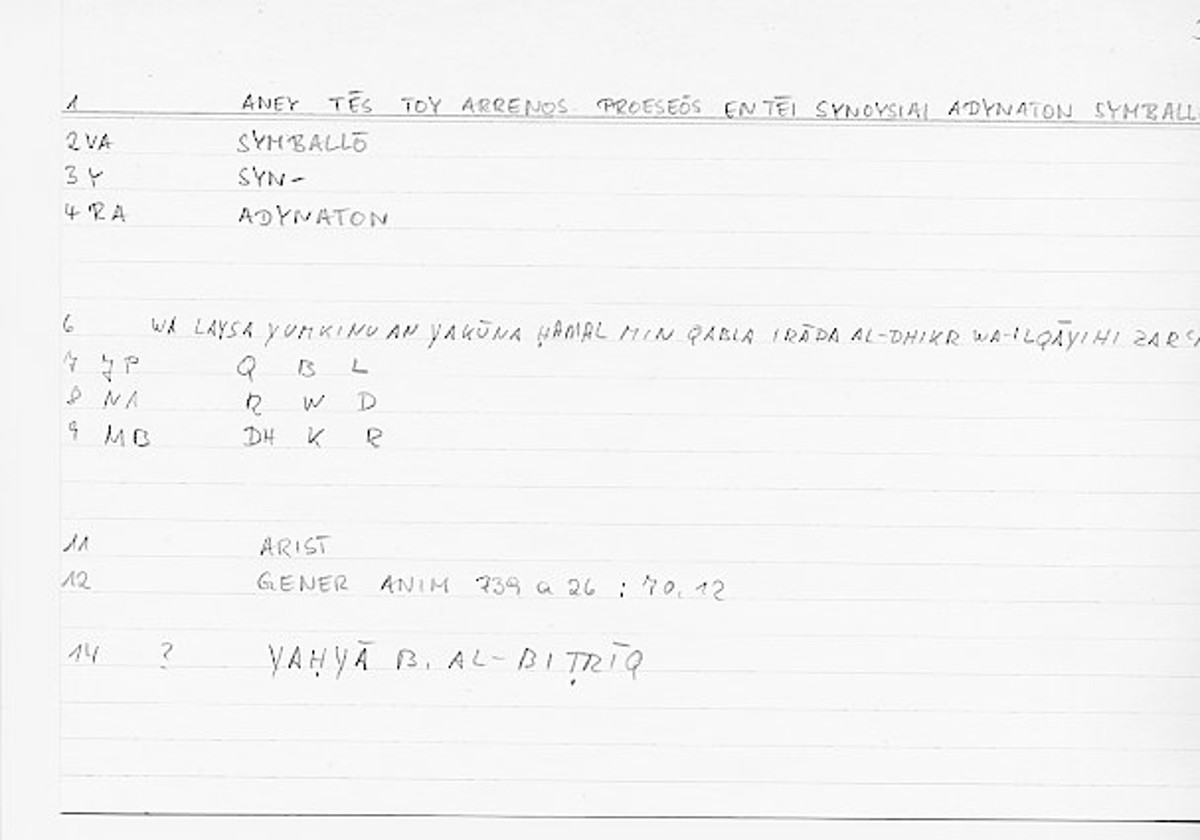 1 ANEY TĒS TOY ARRENOS PROESEŌS EN TĒI SYNOYSIAI ADYNATON SYMBALL
2 VA SYMBALLŌ
3 Y SYN-
4 RA ADYNATON
6 WA LAYSA YUMKINU AN YAKŪNA ḤAMAL MIN QABLA IRĀDA AL-DHIKR WA-ILQĀYIHI ZARʿ
7 JP Q B L
8 NA R W D
9 MB DH K R
11 ARIST
12 GENER ANIM 739 a 26 : 70.12
14 ? YAḤYĀ B. AL-BIṬRĪQ